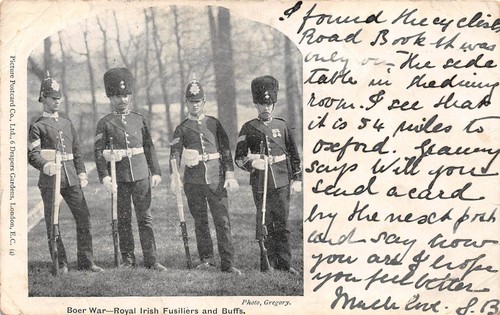 Picture Postcard Co., Ltd., 6 Drapers Gardens, London, E.C.
Boer War—Royal Irish Fusiliers and Buffs.
Photo, Gregory.
I found the cyclists
Road Book it was
only on the side
table in the dining
room. I see that
it is 54 miles to
oxford.
says Will you
send a card
by the next post
and say how
you are I hope
you feel better
Much love. J. B